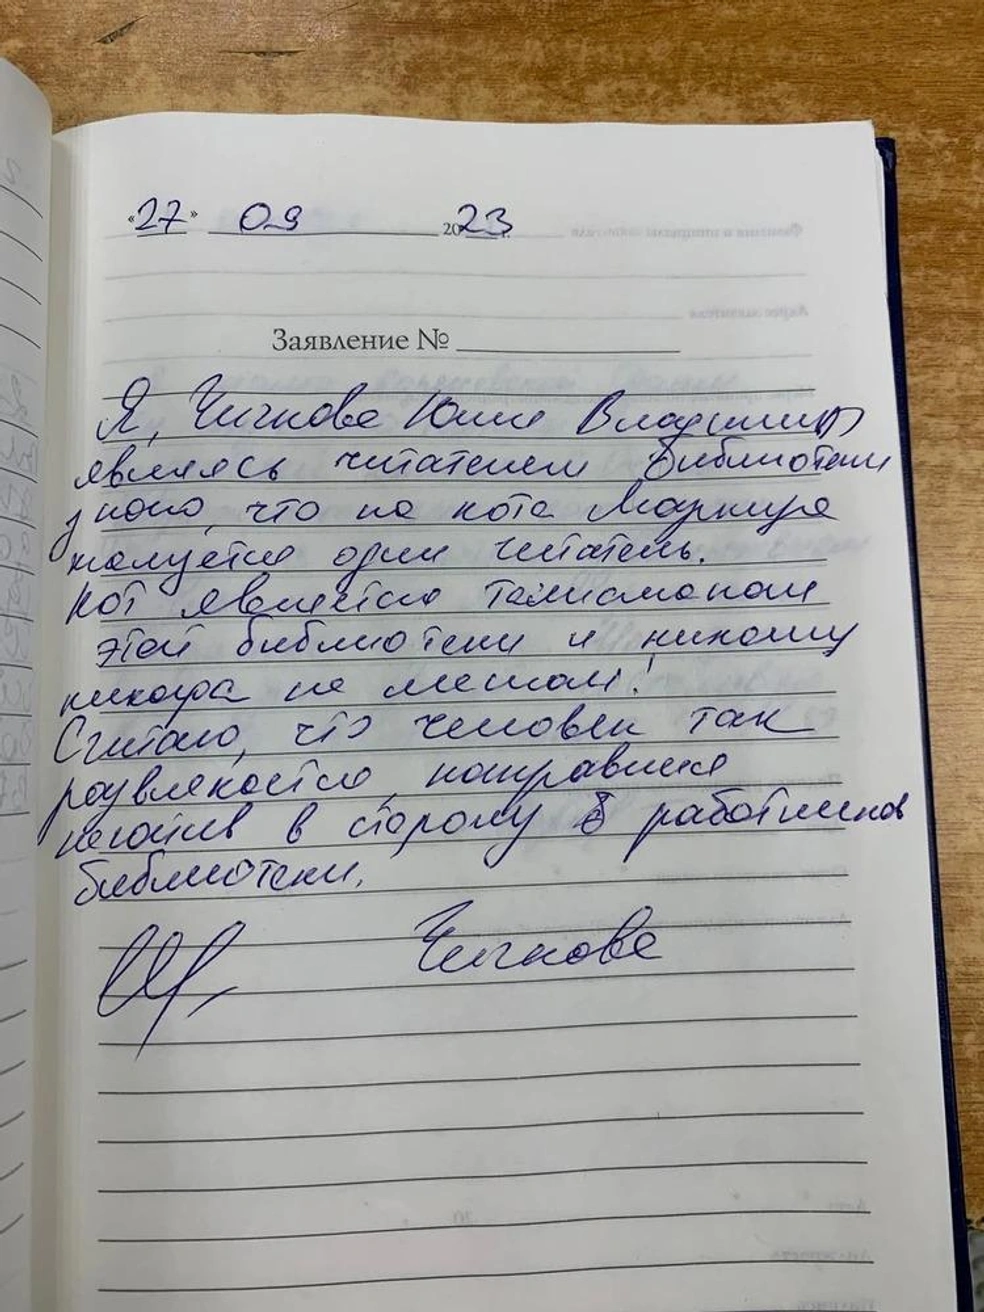 «27» 09 2023 г.
Заявление №
Я, Чичкова Юлия Владимир
являясь читателем библиотеки
знаю, что на кота
жалуется один читатель.
Кот является талисманом
этой библиотеки и никому
никогда не мешал!
Считаю, что человек так
развлекается, направляя
негатив в сторону работников
библиотеки.
Чичкова